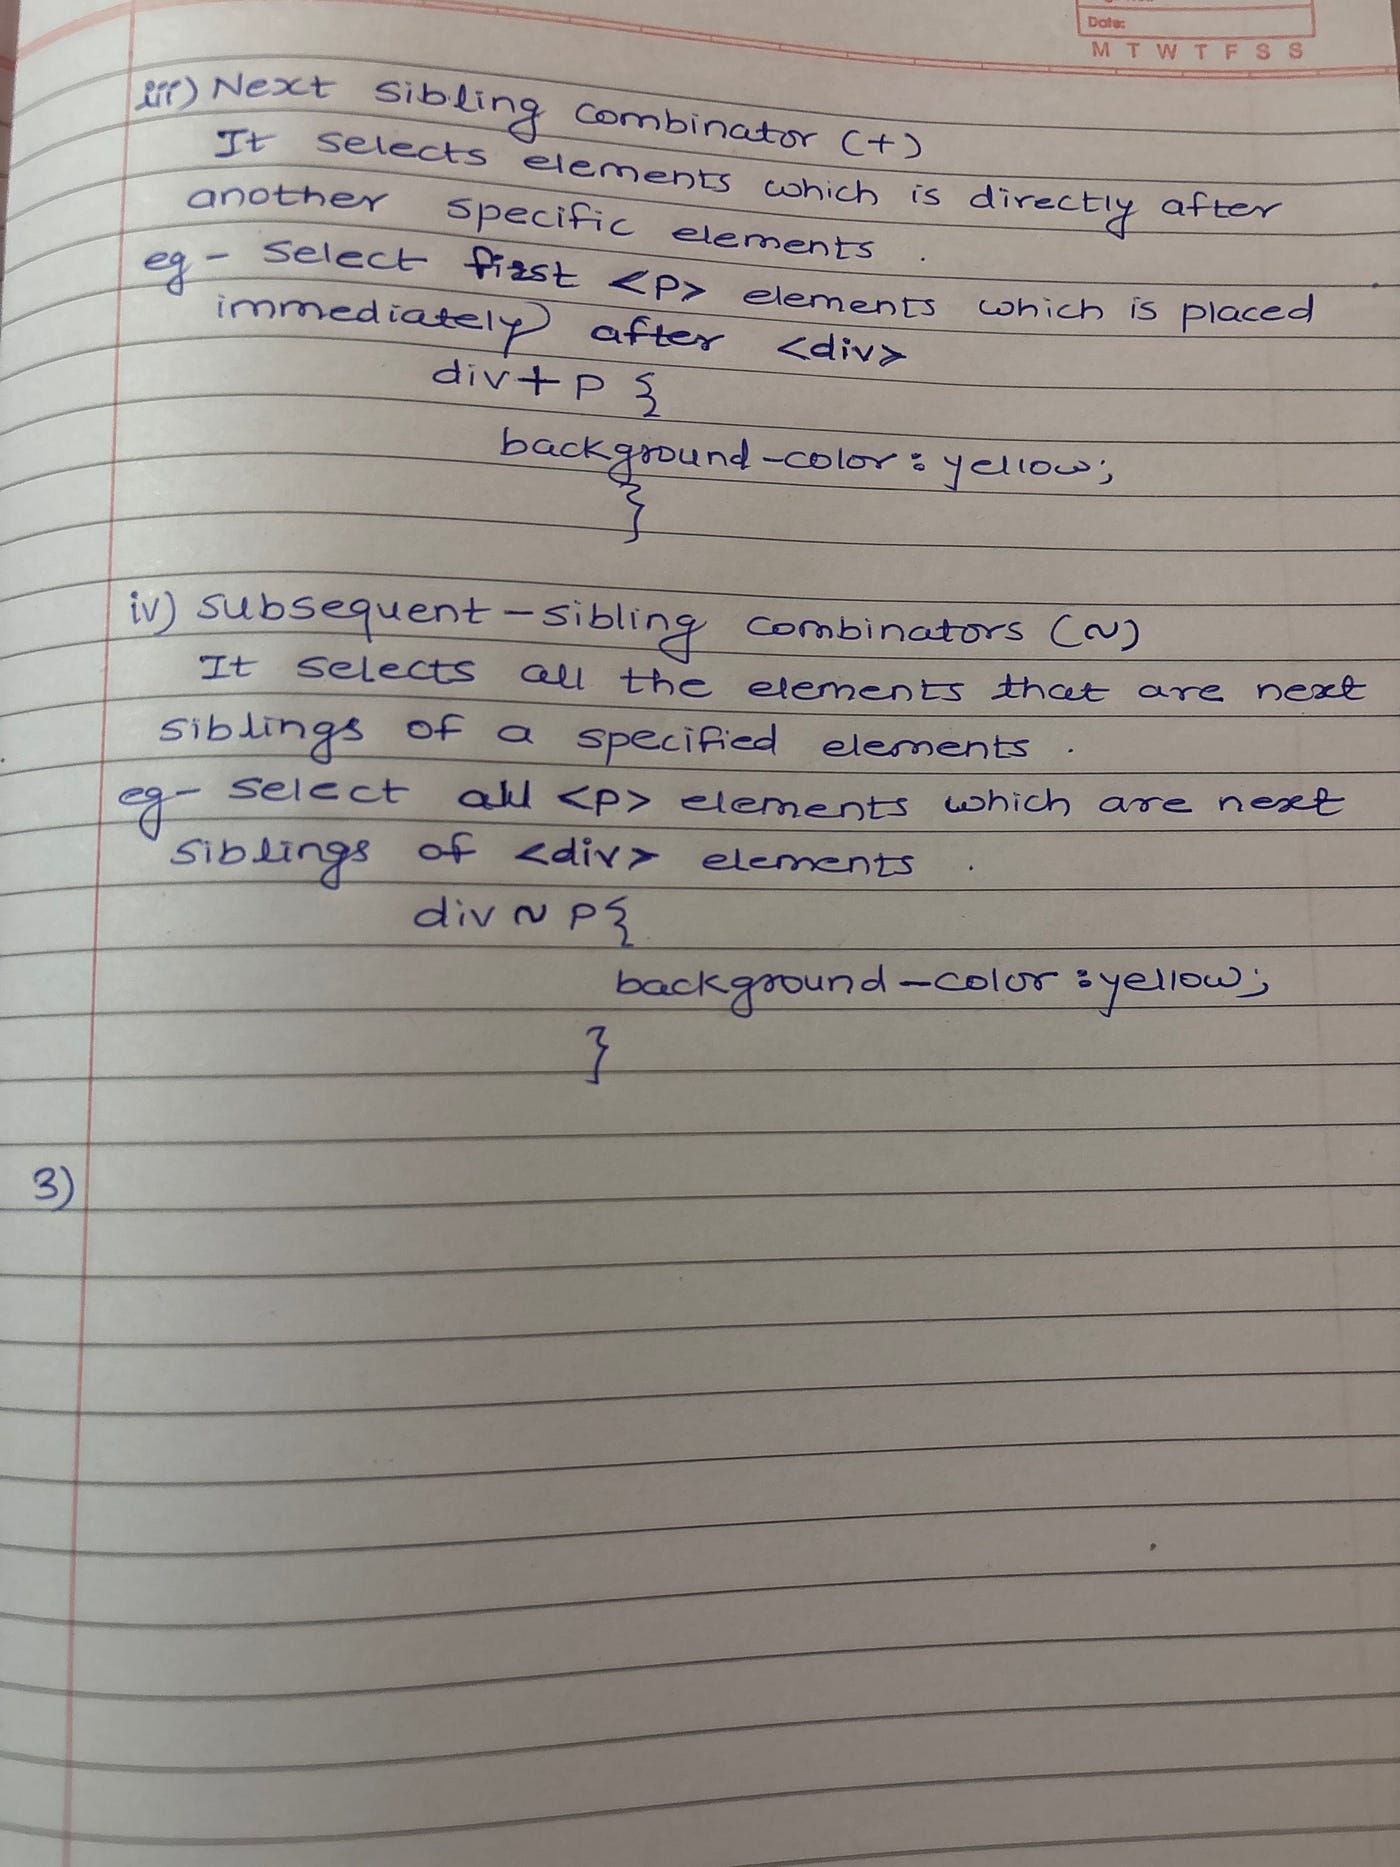 Date:
M T W T F S S
iii) Next sibling combinator (+)
It selects elements which is directly after
another specific elements .
eg - select first <p> elements which is placed
immediately after <div>
div + p {
background-color : yellow;
}
iv) subsequent - sibling combinators (~)
It selects all the elements that are next
siblings of a specified elements .
eg - select all <p> elements which are next
siblings of <div> elements .
div ~ p {
background-color : yellow;
}
3)